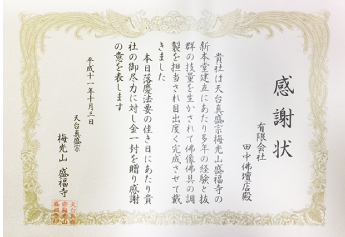 感謝状
有限会社
田中佛壇店殿
貴社は天台真盛宗梅光山盛福寺の
新本堂建立にあたり多年の経験と抜
群の技量を生かされて佛像佛具の調
製を担当され目出度く完成させて戴
きました
本日落慶法要の佳き日にあたり貴
社の御尽力に対し金一封を贈り感謝
の意を表します
平成十一年十月三日
天台真盛宗
梅光山 盛福寺